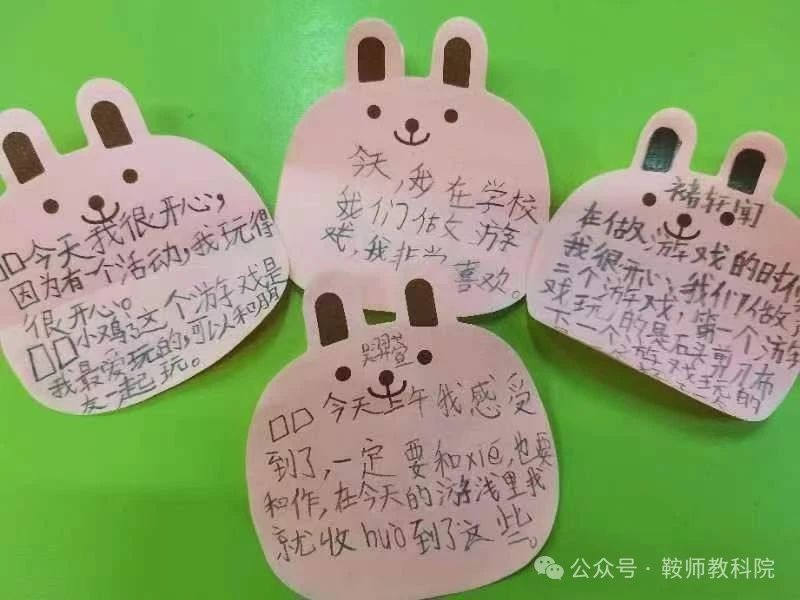 口口今天我很开心,
因为有一个活动,我玩得
很开心。
口口小鸡这个游戏是
我最爱玩的,可以和朋
友一起玩。
今天,我在学校
我们做文游
戏,我非常
喜欢。
褚轩闻
在做游戏的时候
我很开心,我们做了
二个游戏,第一个游
戏玩的是石头剪刀布
下一个游戏玩的
吴羿萱
口口今天上午我感受
到了,一定要和xiē,也要
和作,在今天的游浅里我
就收huò到了这些。
公众号·鞍师教科院